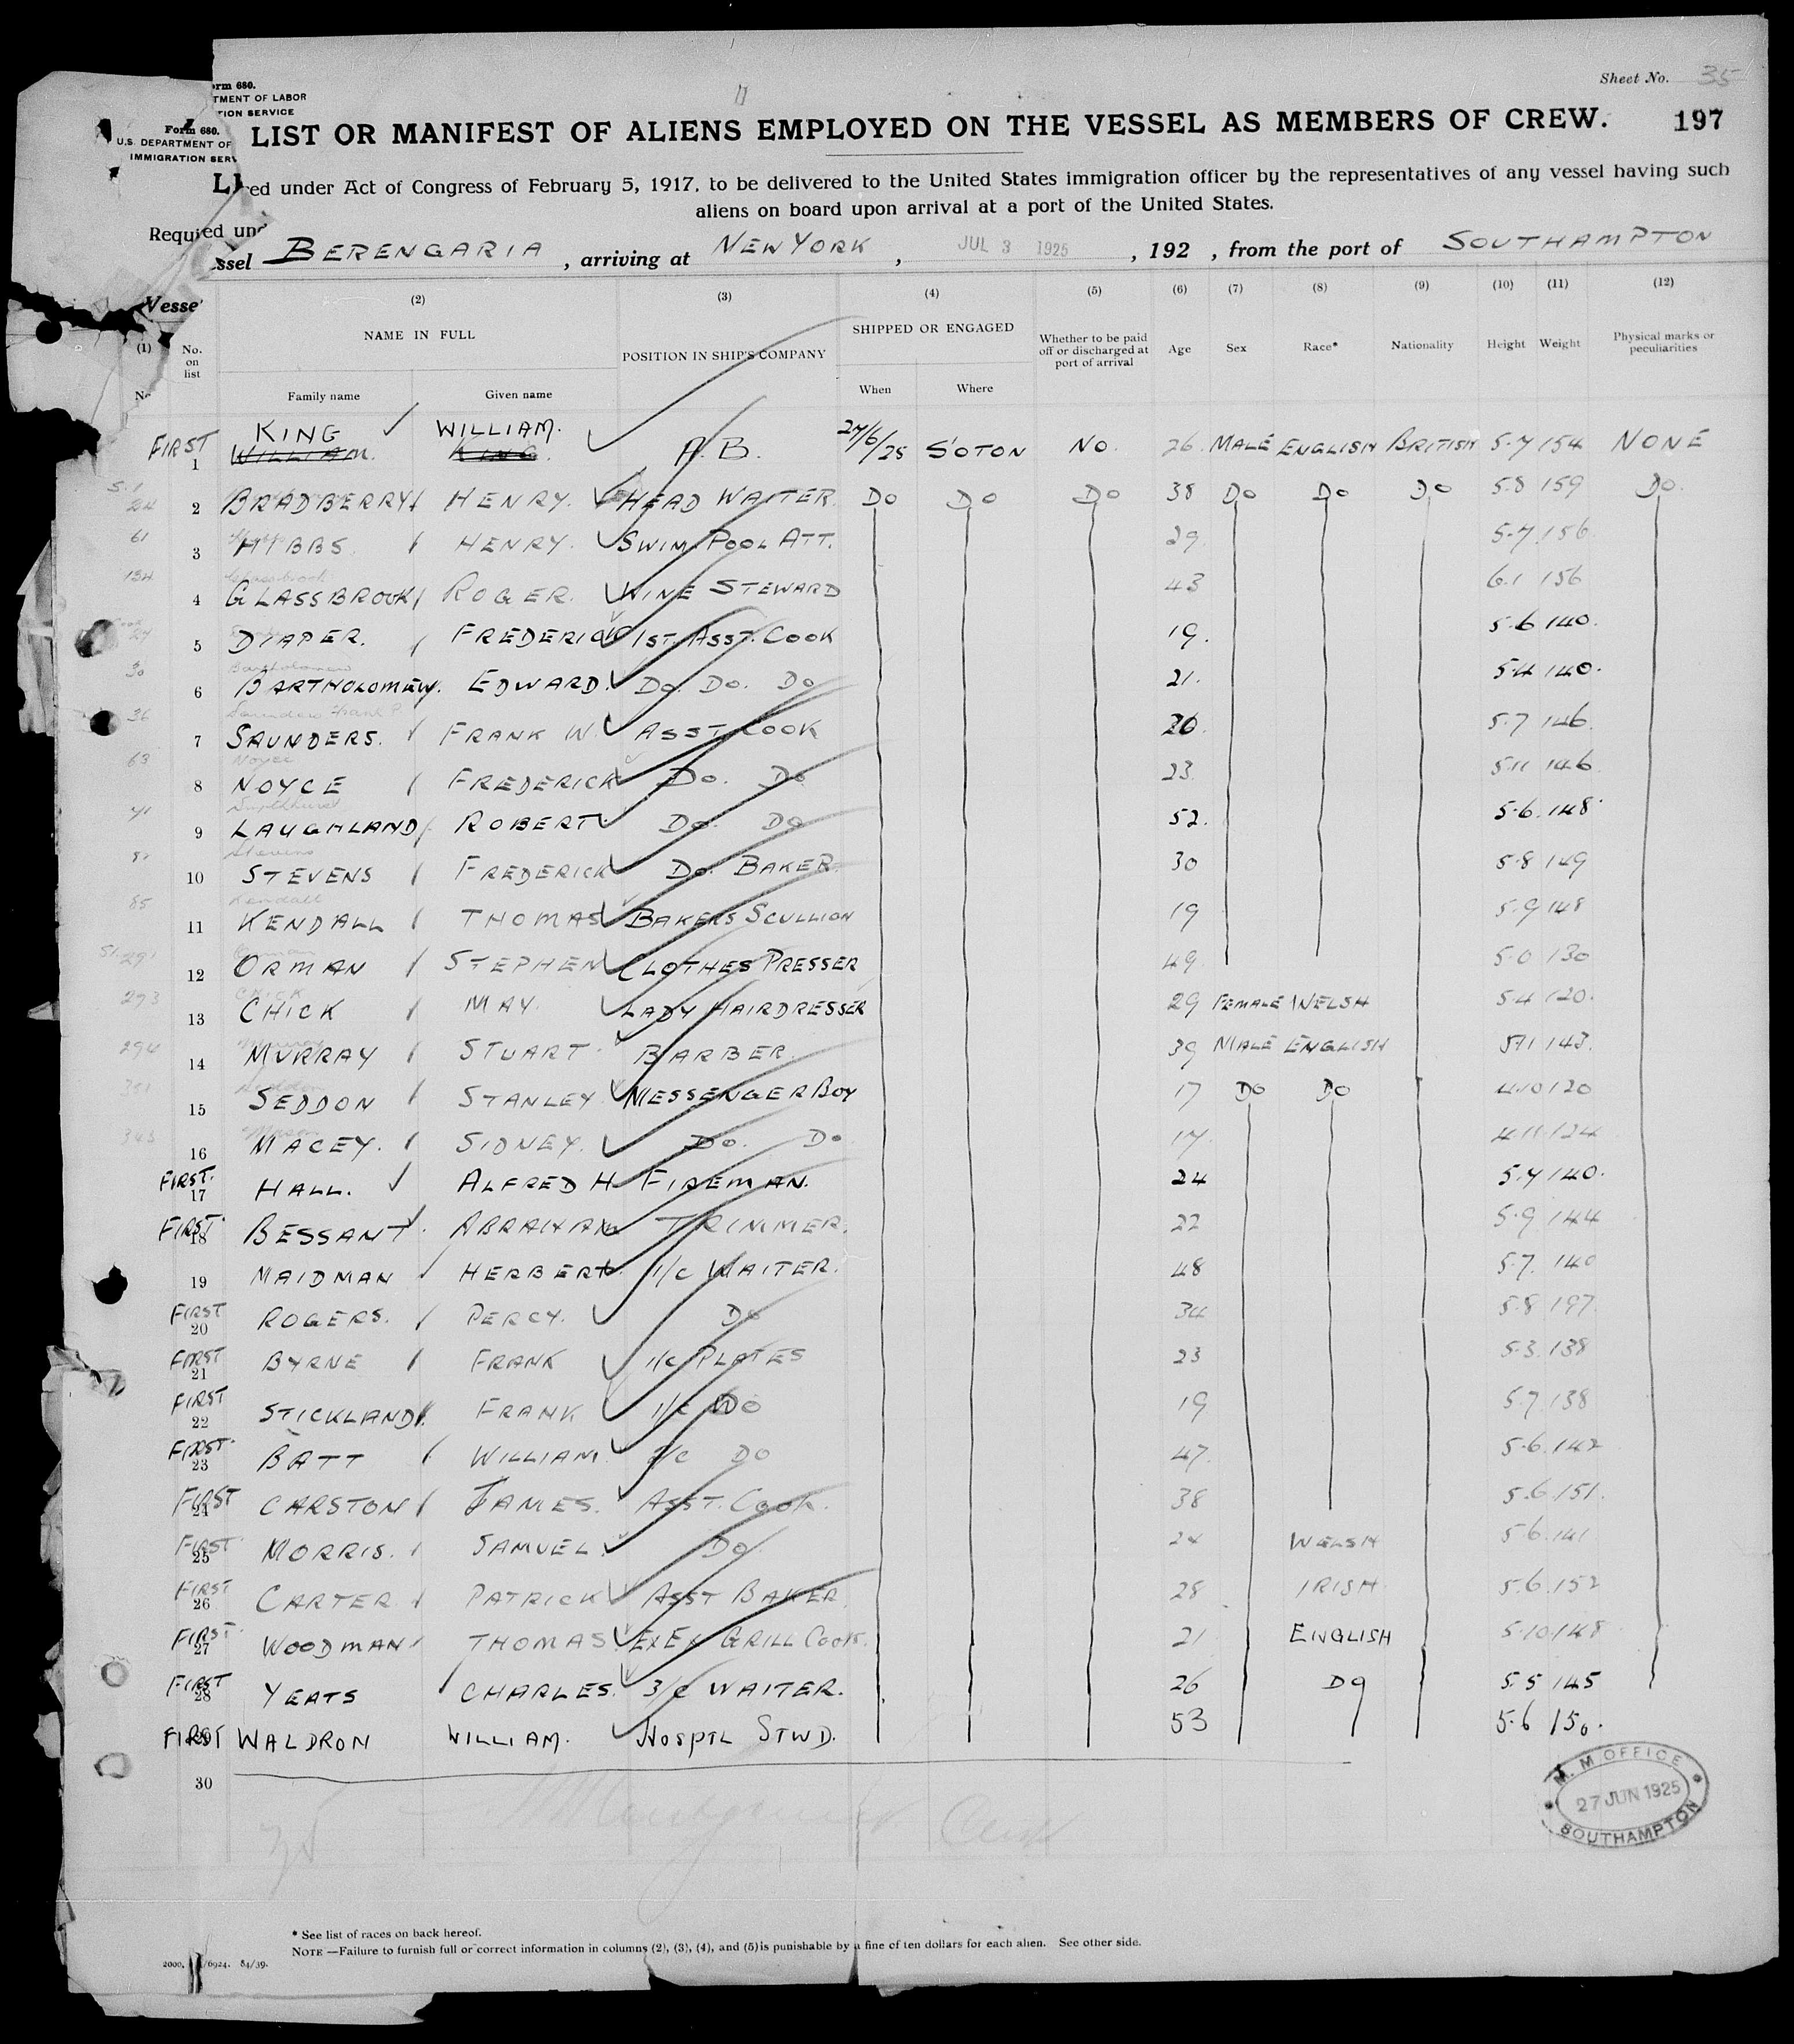 Sheet No. 35
Form 680.
TMENT OF LABOR
TION SERVICE
Form 680.
U.S. DEPARTMENT OF
IMMIGRATION SERV
LIST OR MANIFEST OF ALIENS EMPLOYED ON THE VESSEL AS MEMBERS OF CREW. 197
red under Act of Congress of February 5, 1917, to be delivered to the United States immigration officer by the representatives of any vessel having such
aliens on board upon arrival at a port of the United States.
Required und
ssel BERENGARIA, arriving at NEW YORK, JUL 3 1925, 192 , from the port of SOUTHAMPTON
Vesse
(1) (2) (3) (4) (5) (6) (7) (8) (9) (10) (11) (12)
No. on list NAME IN FULL POSITION IN SHIP'S COMPANY SHIPPED OR ENGAGED Whether to be paid off or discharged at port of arrival Age Sex Race* Nationality Height Weight Physical marks or peculiarities
Family name Given name When Where
FIRST 1 KING WILLIAM. A.B. 27/6/25 S'OTON NO. 26 MALE ENGLISH BRITISH 5.7 154 NONE
WILLIAM. KING.
24 2 BRADBERRY HENRY. HEAD WAITER Do Do Do 38 Do Do Do 5.8 159 Do.
61 3 HIBBS HENRY. SWIM. POOL ATT. 29. 5.7 156
134 4 GLASSBROOK ROGER. WINE STEWARD 43 6.1 156
5 DIAPER. FREDERICK 1ST. ASST. COOK 19. 5.6 140.
30 Bartholomew
6 BARTHOLOMEW. EDWARD. Do. Do. Do 21. 5.4 140.
36 Saunders Frank P
7 SAUNDERS. FRANK W. ASST. COOK 26. 5.7 146.
63 Noyce
8 NOYCE FREDERICK Do. Do 23. 5.11 146
41 Smithhurst
9 LAUGHLAND ROBERT. Do. Do 52. 5.6. 148.
Stevens
10 STEVENS FREDERICK Do. BAKER. 30 5.8 149
85 Kendall
11 KENDALL THOMAS BAKERS SCULLION 19 5.9 148
291
12 ORMAN STEPHEN CLOTHES PRESSER 49. 5.0 130
293 CHICK
13 CHICK MAY. LADY HAIRDRESSER 29 FEMALE WELSH 5.4 120.
294 Murray
14 MURRAY STUART. BARBER. 39 MALE ENGLISH 5.11 143.
Seddon
15 SEDDON STANLEY. MESSENGER BOY 17 Do Do 4.10 120
343
16 MACEY. SIDNEY. Do. Do 17. 4.11. 124
FIRST. 17 HALL. ALFRED H. FIREMAN. 24 5.7 140.
FIRST 18 BESSANT. ABRAHAM TRIMMER. 22 5.9 144
19 MAIDMAN HERBERT. 1/C WAITER. 48 5.7. 140
FIRST 20 ROGERS. PERCY. Do 34 5.8 197.
FIRST 21 BYRNE FRANK 1/C PLATES 23 5.3. 138
FIRST 22 STICKLAND FRANK 1/C DO 19 5.7. 138
FIRST. 23 BATT WILLIAM 2/C DO 47. 5.6. 142
FIRST 24 CARSTON JAMES. ASST. COOK. 38 5.6. 151.
FIRST 25 MORRIS. SAMUEL. Do 24 WELSH 5.6. 141
FIRST 26 CARTER PATRICK ASST BAKER. 28 IRISH 5.6. 152
FIRST. 27 WOODMAN THOMAS GRILL COOK. 21 ENGLISH 5.10. 148
FIRST 28 YEATS CHARLES. 3/C WAITER. 26 Do 5.5 145
FIRST 29 WALDRON WILLIAM. HOSPTL STWD. 53 5.6 150.
30
M. M OFFICE
27 JUN 1925
SOUTHAMPTON
* See list of races on back hereof.
NOTE —Failure to furnish full or correct information in columns (2), (3), (4), and (5) is punishable by a fine of ten dollars for each alien. See other side.
2000, /6924. 84/39.